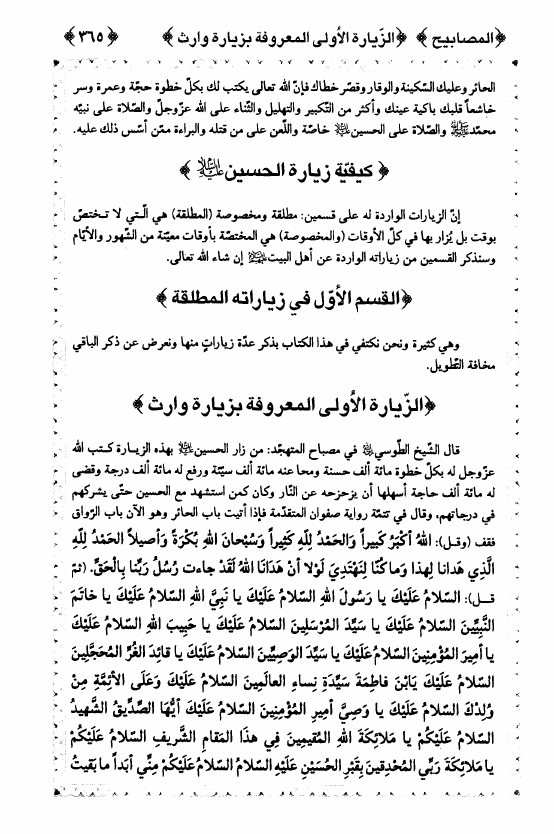 ﴿المصابيح﴾ ﴿الزّيارة الأولى المعروفة بزيارة وارث﴾ ﴿٣٦٥﴾
الحائر وعليك السّكينة والوقار وقصّر خطاك فإنّ الله تعالى يكتب لك بكلّ خطوة حجّة وعمرة وسر
خاشعاً قلبك باكية عينك وأكثر من التّكبير والتهليل والثّناء على الله عزّوجلّ والصّلاة على نبيّه
محمّد ﷺ والصّلاة على الحسين خاصّة واللّعن على من قتله والبراءة ممّن أسّس ذلك عليه.
﴿كيفيّة زيارة الحسين﴾
إنّ الزيارات الواردة له على قسمين: مطلقة ومخصوصة (المطلقة) هي الّتي لا تختصّ
بوقت بل يُزار بها في كلّ الأوقات (والمخصوصة) هي المختصّة بأوقات معيّنة من الشّهور والأيّام
وسنذكر القسمين من زياراته الواردة عن أهل البيت إن شاء الله تعالى.
﴿القسم الأوّل في زياراته المطلقة﴾
وهي كثيرة ونحن نكتفي في هذا الكتاب بذكر عدّة زياراتٍ منها ونعرض عن ذكر الباقي
مخافة التّطويل.
﴿الزّيارة الأولى المعروفة بزيارة وارث﴾
قال الشّيخ الطّوسي في مصباح المتهجّد: من زار الحسين بهذه الزيارة كتب الله
عزّوجل له بكلّ خطوة مائة ألف حسنة ومحا عنه مائة ألف سيّئة ورفع له مائة ألف درجة وقضى
له مائة ألف حاجة أسهلها أن يزحزحه عن النّار وكان كمن استشهد مع الحسين حتّى يشركهم
في درجاتهم، وقال في تتمّة رواية صفوان المتقدّمة فإذا أتيت باب الحائر وهو الآن باب الرّواق
فقف (وقل): اللهُ أكْبَرُ كَبيراً وَالحَمْدُ لِلّهِ كَثيراً وَسُبْحَانَ اللهِ بُكْرَةً وَأصيلاً الحَمْدُ لِلّهِ
الَّذي هَدانا لِهذا وَما كُنّا لِنَهْتَدِيَ لَوْلا أنْ هَدَانَا اللهُ لَقَدْ جاءت رُسُلُ رَبِّنا بِالْحَقِّ. (ثمّ
قل): السّلامُ عَلَيْكَ يا رَسُولَ اللهِ السّلامُ عَلَيْكَ يا نَبِيَّ اللهِ السّلامُ عَلَيْكَ يا خاتَمَ
النَّبِيِّينَ السّلامُ عَلَيْكَ يا سَيِّدَ المُرْسَلينَ السّلامُ عَلَيْكَ يا حَبيبَ اللهِ السّلامُ عَلَيْكَ
يا أميرَ المُؤْمِنينَ السّلامُ عَلَيْكَ يا سَيِّدَ الوَصِيِّينَ السّلامُ عَلَيْكَ يا قائدَ الغُرِّ المُحَجَّلينَ
السّلامُ عَلَيْكَ يَابْنَ فاطِمَةَ سَيِّدَةِ نِساءِ العالَمينَ السّلامُ عَلَيْكَ وَعَلَى الأئِمَّةِ مِنْ
وُلْدِكَ السّلامُ عَلَيْكَ يا وَصِيَّ أميرِ المُؤْمِنينَ السّلامُ عَلَيْكَ أيُّهَا الصِّدّيقُ الشَّهيدُ
السّلامُ عَلَيْكُمْ يا مَلائِكَةَ اللهِ المُقيمينَ فِي هذَا المَقامِ الشَّريفِ السّلامُ عَلَيْكُمْ
يا مَلائِكَةَ رَبِّي المُحْدِقينَ بِقَبْرِ الحُسَيْنِ عَلَيْهِ السّلامُ السّلامُ عَلَيْكُمْ مِنِّي أبَداً ما بَقيتُ